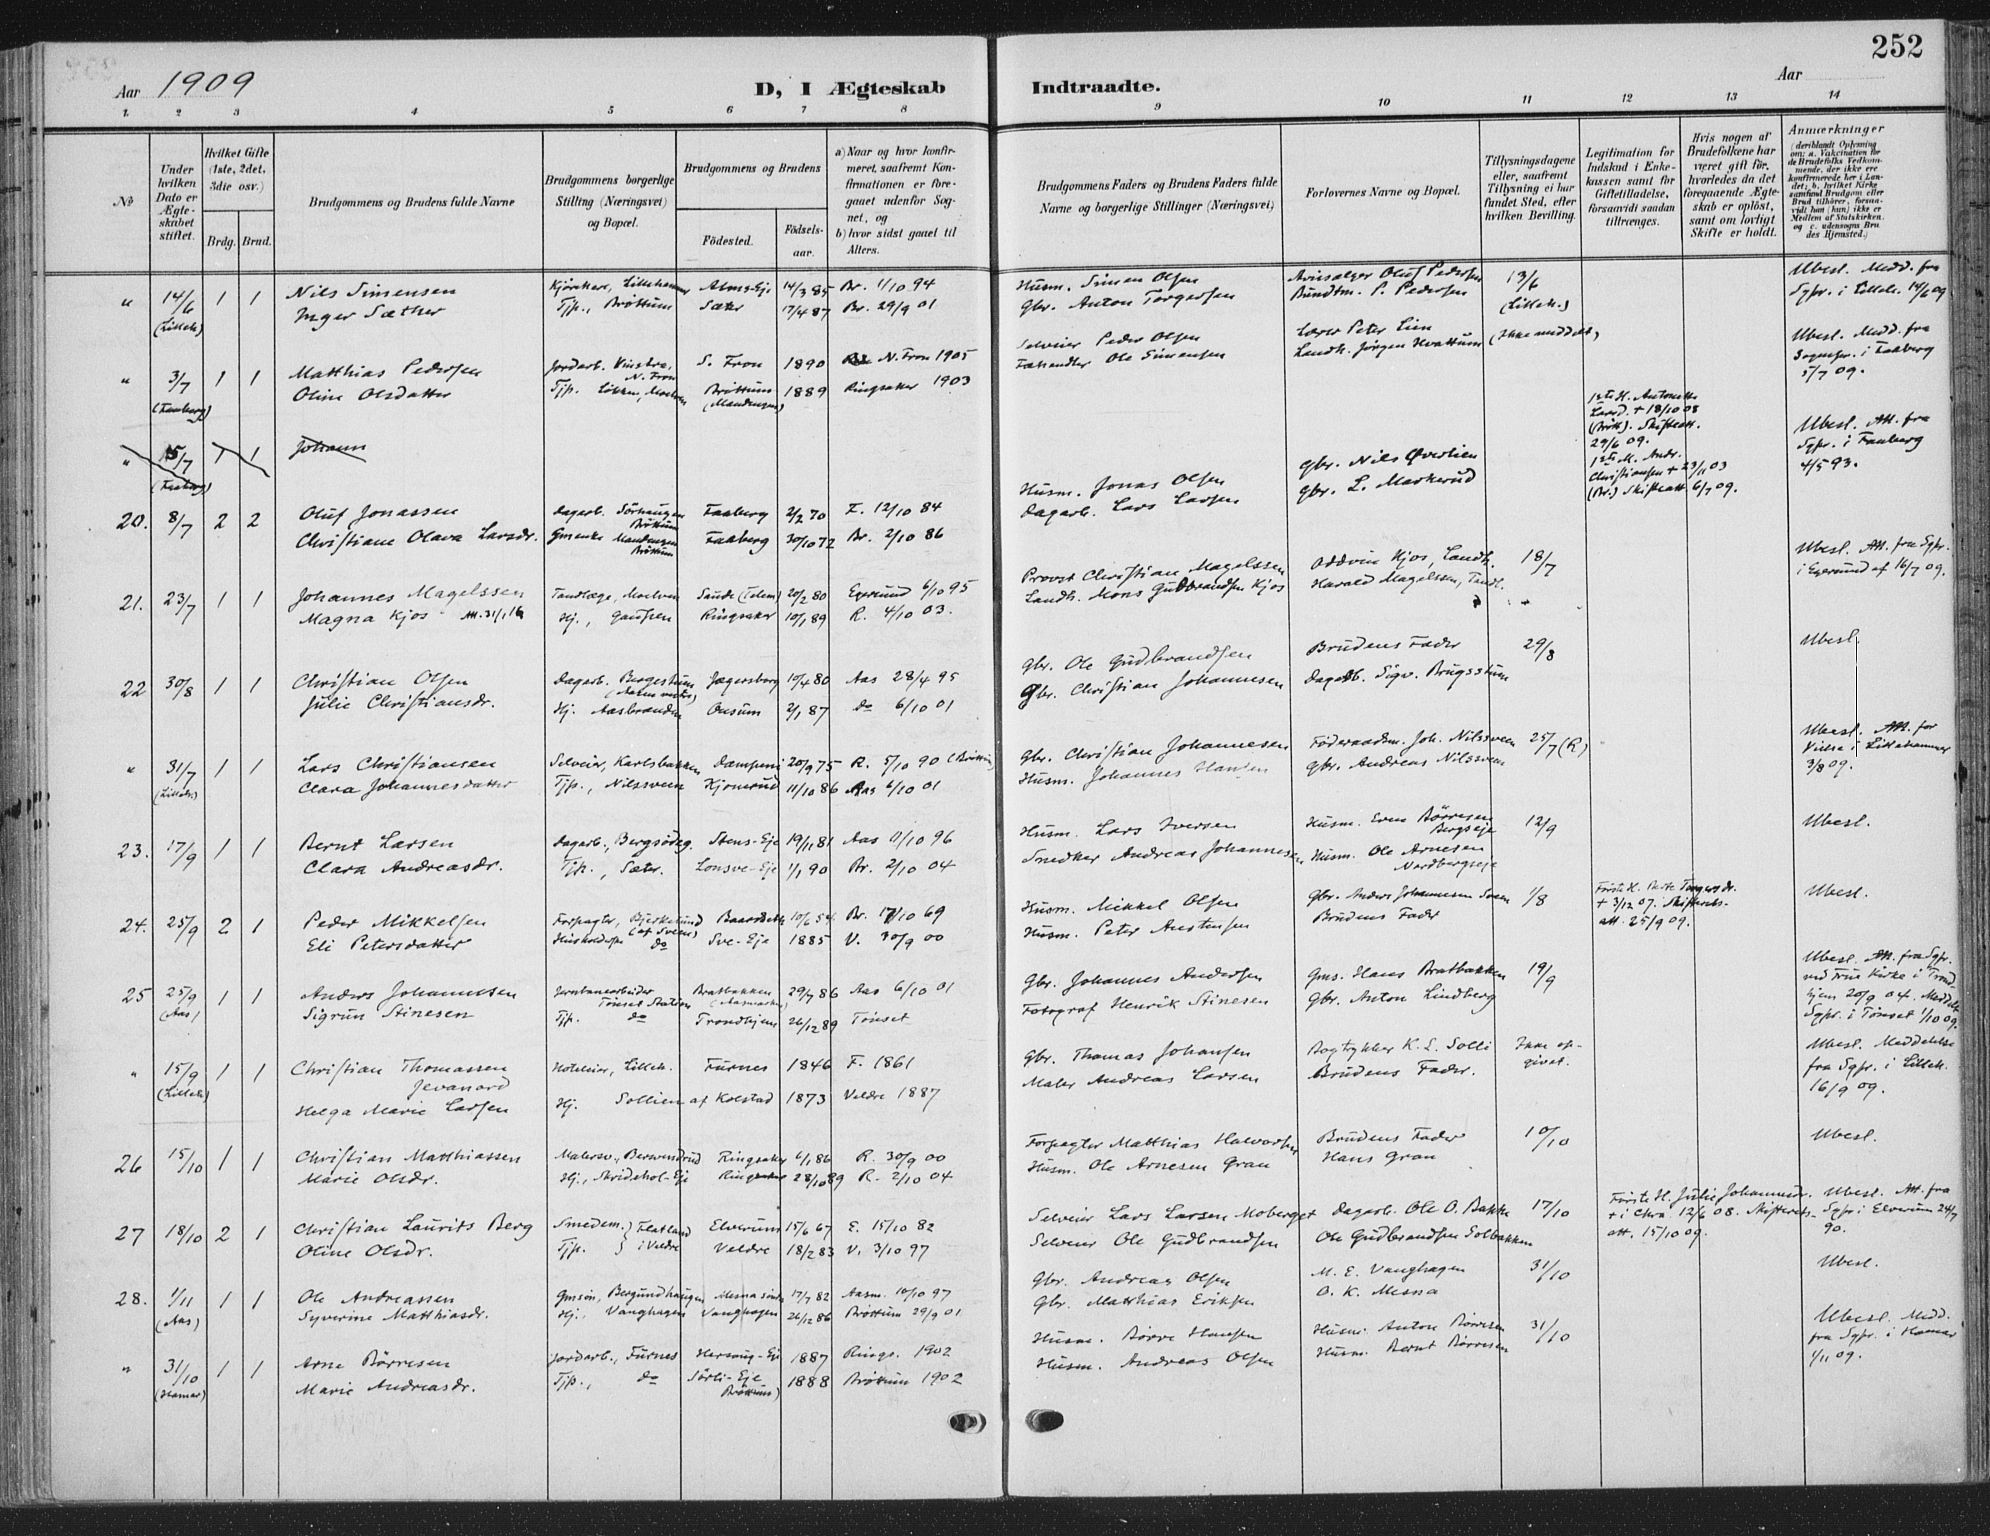 252
Aar 1909
D, I Ægteskab Indtraadte.
Aar
1. 2 3 4 5 6 7 8 9 10 11 12 13 14
No
Under hvilken Dato er Ægteskabet stiftet.
Hvilket Gifte (1ste, 2det, 3die osv.)
Brdg. Brud.
Brudgommens og Brudens fulde Navne
Brudgommens borgerlige Stilling (Næringsvei) og Bopæl.
Brudgommens og Brudens
Fødested.
Fødselsaar.
a) Naar og hvor konfirmeret, saafremt Konfirmationen er foregaaet udenfor Sognet, og
b) hvor sidst gaaet til Alters.
Brudgommens Faders og Brudens Faders fulde Navne og borgerlige Stillinger (Næringsvei)
Forlovernes Navne og Bopæl.
Tillysningsdagene eller, saafremt Tillysning ei har fundet Sted, efter hvilken Bevilling.
Legitimation for Indskud i Enkekassen samt for Giftetilladelse, forsaavidt saadan tiltrænges.
Hvis nogen af Brudefolkene har været gift før, hvorledes da det foregaaende Ægteskab er opløst, samt om lovligt Skifte er holdt.
Anmærkninger
(deriblandt Oplysning om: a. Vakcination for de Brudefolks Vedkommende, der ikke ere konfirmerede her i Landet; b. hvilket Kirkesamfund Brudgom eller Brud tilhører, forsaavidt han (hun) ikke er Medlem af Statskirken, og c. udensogns Brudes Hjemsted.)
" 14/6 1 1 Nils Simensen Lilleham̄er Alms-Eje 14/3 85 Br. 11/10 94 Husm. Simen Olsen Avissælger Oluf Pedersen 13/6 Ubesl. Medd. fra
(Lilleh.) Inger Sæther Tjp., Brøttum Sæter 17/4 87 Br. 29/9 01 Gbr. Anton Torgersen Bundtm. P. Pedersen (Lilleh.) Sgpr. i Lilleh. 14/6 09
" 3/7 1 1 Matthias Pedersen Jordarb. Vinstra, N. Fron S. Fron 1890 N. Fron 1905 Selveier Peder Olsen Lærer Peter Lien (Ikke meddelt) Ubesl. Medd. fra
(Faaberg) Oline Olsdatter Tjp. Løkken, Moelven Brøttum 1889 Ringsaker 1903 Ole Simensen Landh. Jörgen Hvattum Sognepr. i Faaberg
5/7 09.
" 15/7 1 1 Johann
(Faaberg)
20. 8/7 2 2 Oluf Jonassen Dagarb. Sörhaugen Brøttum Faaberg 2/2 70 F. 12/10 84 Husm. Jonas Olsen Gbr. Nils Øverlien 1ste H. Antonette Larsd. + 18/10 08 (Brött). Skifteatt. 29/6 09. Ubesl. Att. fra
Christiane Olava Larsdr. Gmenke Mandengen Brøttum Faaberg 30/10 72 Br. 2/10 86 Dagarb. Lars Larsen Gbr. L. Maskerud 1ste M. Andr. Christiansen + 23/11 03 (Br.) Skifteatt. 6/7 09. Sgpr. i Faaberg 4/5 93.
21. 23/7 1 1 Johannes Magelssen Tandlæge, Moelven Saude (Telem) 20/2 80 Egersund 6/10 95 Provst Christian Magelssen Oddvin Kjos, Landh. 18/7 Ubesl. Att. fra Sgpr.
Magna Kjos Att. 31/1 16 Hj., Ringsaker 10/1 89 R. 4/10 03. Landh. Mons Gudbrandsen Kjos Harald Magelssen, Tandl. i Egersund af 16/7 09.
22 30/8 1 1 Christian Olsen Dagarb. Bergestuen Jægersborg 19/4 80 Aas 28/4 95 Gbr. Ole Gudbrandsen Brudens Fader 29/8 Ubesl.
Julie Christiansdr. Hj. Aasbranden Onsum 2/1 87 do 6/10 01 Gbr. Christian Johannesen Dagarb. Sigv. Brugsstuen
" 31/7 1 1 Lars Christiansen Selveier, Karlsbakken 20/9 75 R. 5/10 90 (Brøttum) Gbr. Christian Johannesen Föderaadsm. Joh. Nilssveen 25/7 (R) Ubesl. Att. for
(Lilleh.) Clara Johannesdatter Tjp., Nilssveen Kjönerud 11/10 86 Aas 6/10 01 Husm. Johannes Hansen Gbr. Andreas Nilssveen Vielse i Lillehammer
3/8 09.
23. 17/9 1 1 Bernt Larsen Dagarb., Bergsödeg. Stens-Eje 19/11 81 Aas 11/10 96 Husm. Lars Iversen Husm. Even Börresen Bergseje 12/9 Ubesl.
Clara Andreasdr. Tjp., Sæter. Lonsve-Eje 1/1 90 Br. 2/10 04 Snedker Andreas Johannesen Husm. Ole Arnesen Nordbergseje
24. 25/9 2 1 Peder Mikkelsen Forpagter, Bjerkelund (af Sveen) 10/6 54 Br. 17/10 69 Husm. Mikkel Olsen Gbr. Anders Johannesen Sveen 1/8 Første H. Torgersdr. + 3/12 07. Skifterets- Ubesl.
Eli Petersdatter Husholderske do Sve-Eje 1885 V. 30/9 00 Husm. Peter Austensen Brudens Fader att. 25/9 09.
25 25/9 1 1 Anders Johannesen Jernbanearbeider Bratbakken 29/7 86 Aas 6/10 01 Gbr. Johannes Andersen Gms. Hans Bratbakken 19/9 Ubesl. Att. fra Sgpr.
(Aas) Sigrun Stinesen Tönset Station Tjp. do Trondhjem 26/12 89 Tönset Fotograf Henrik Stinesen Gbr. Anton Lindberg ved Frue Kirke i Trondhjem 20/9 04. Meddelt Sgpr. i Tönset 1/10 09.
" 15/9 1 1 Christian Thomassen Jevanord Hoteleier, Lilleh. Furnes 1846 F. 1861 Gbr. Thomas Johansen Bogtrykker K. L. Solli Ikke opgivet. Ubesl. Meddelelse
(Lilleh) Helga Marie Larsen Hj. Sollien af Kolstad 1873 Veldre 1887 Maler Andreas Larsen Brudens Fader. fra Sgpr. i Lilleh. 16/9 09.
26 15/10 1 1 Christian Matthiassen Malersv., Ringsaker 6/1 86 R. 30/9 00 Forpagter Matthias Halvorsen Brudens Fader 10/10 Ubesl.
Marie Olsdr. Hj., Skridshol-Eje Ringsaker 28/10 89 R. 2/10 04 Husm. Ole Arnesen Gran Hans Gran
27 18/10 2 1 Christian Laurits Berg Smedem. } Flatland Elverum 15/6 67 E. 15/10 82 Selveier Lars Larsen Moberget Dagarb. Ole O. Bakke 17/10 Første H. Julie Johannesdr. + i Chra. 12/6 08. Skifterets- Ubesl. Att. fra
Oline Olsdr. Tjp. } i Veldre Veldre 18/2 83 V. 3/10 97 Selveier Ole Gudbrandsen Ole Gudbrandsen Solbakken att. 15/10 09. Sgpr. i Elverum 24/7 90.
28. 1/11 1 1 Ole Andreassen Gmsön, Bergundhaugen 17/7 82 Aasm. 10/10 97 Gbr. Andreas Olsen M. E. Vanghagen 31/10 Ubesl.
(Aas) Syverine Matthiasdr. Hj., Vanghagen Vanghagen 26/12 86 Brøttum 29/9 01 Gbr. Matthias Eriksen O. K. Mesna
" 31/10 1 1 Arne Börresen Jordarb., Furnes Hersoug-Eje 1887 Rings. 1902 Husm. Börre Hansen Husm. Anton Börresen 31/10 Ubesl. Medd.
(Hamar) Marie Andreasdr. Tjp., do Sörli-Eje (Brøttum) 1888 Brøttum 1902 Husm. Andreas Olsen Husm. Bernt Börresen fra Sgpr. i Hamar
1/11 09.